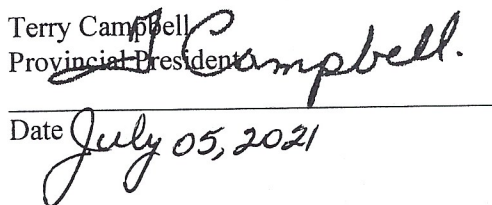 Terry Campbell
Provincial President
T Campbell.
Date July 05, 2021